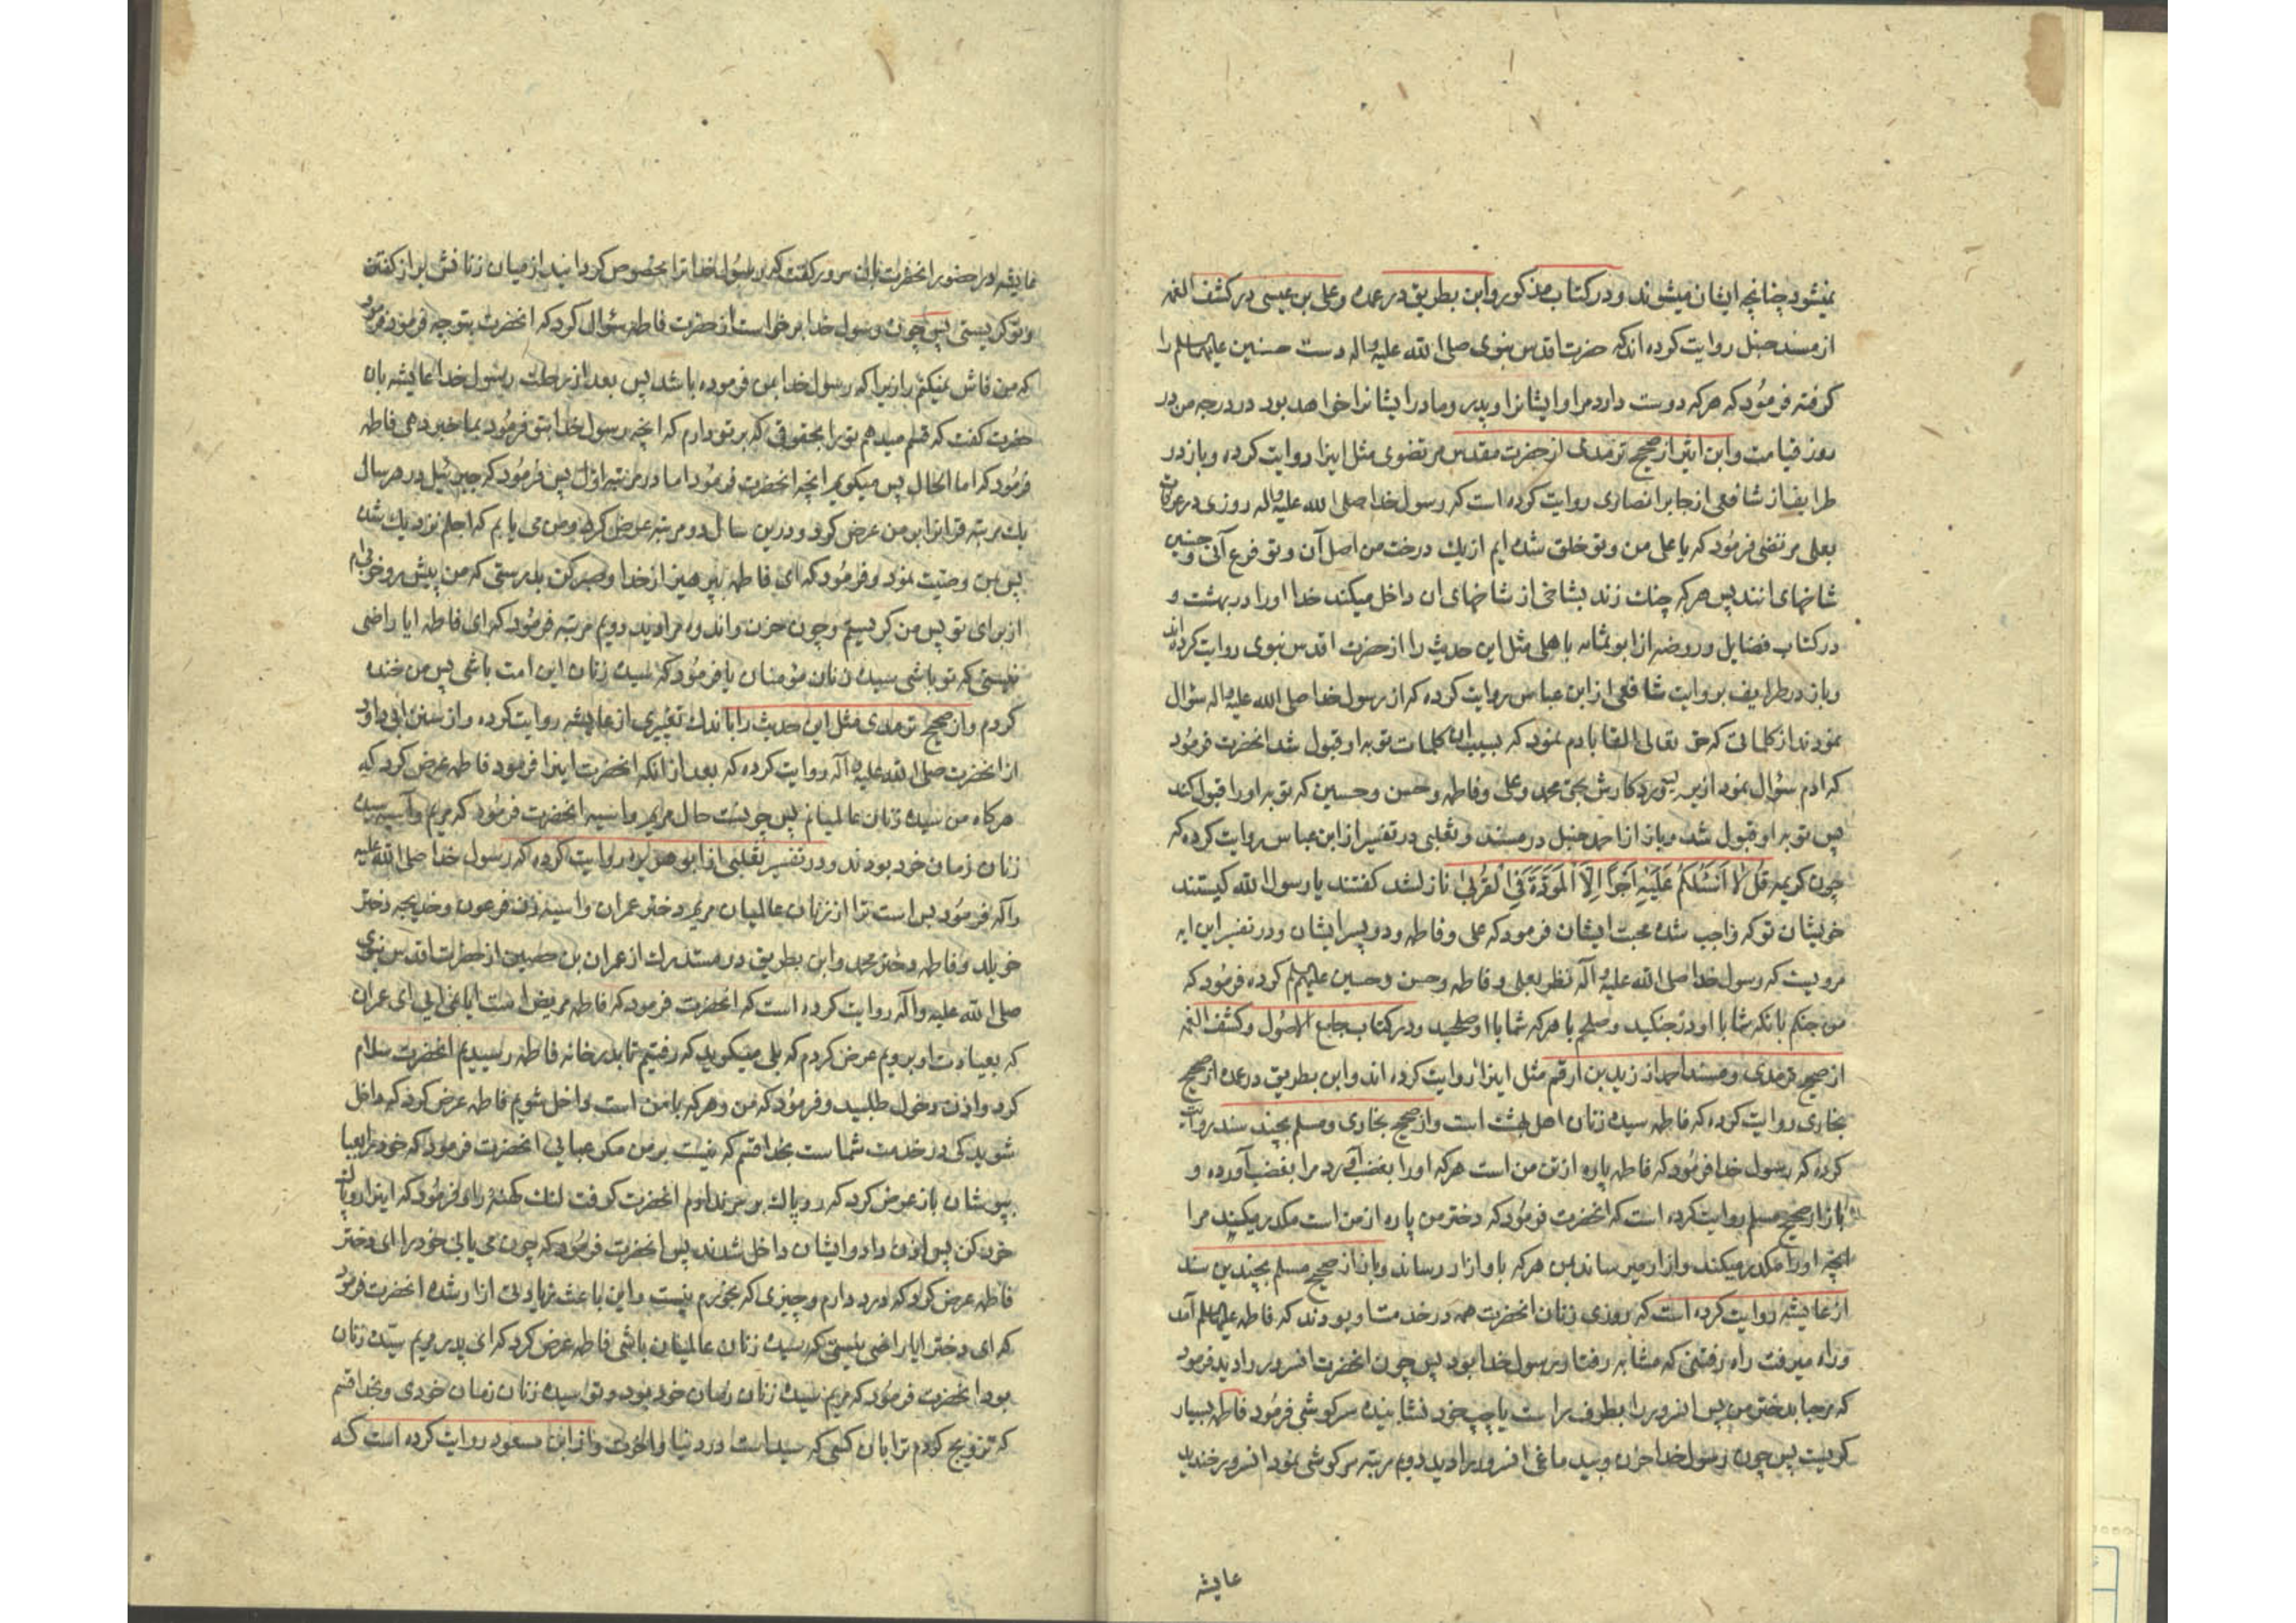 نمیشود چنانچه ایشان میشوند و در کتاب مذکور و ابن بطریق در عمده و علی بن عیسی در کشف الغمه
از مسند حنبل روایت کرده اند که حضرت اقدس نبوی صلی الله علیه واله دست حسنین علیهماالسلم را
کرفته فرمود که هرکه دوست دارد مرا و ایشانرا و پدر و مادر ایشانرا خواهد بود در درجه من در
روز قیامت و ابن اثیر از صحیح ترمذی از حضرت مقدس مرتضوی مثل اینرا روایت کرده و باز در
طرایف از شافعی از جابر انصاری روایت کرده است که رسول خدا صلی الله علیه واله روزی در عرفات
بعلی مرتضی فرمود که یا علی من و تو خلق شده ایم از یك درخت من اصل آن و تو فرع آنی و حسنین
شاخهای انند پس هرکه چنك زند بشاخی از شاخهای ان داخل میکند خدا اورا در بهشت و
در کتاب فضایل و روضه از ابو ثمامه باهلی مثل این حدیث را از حضرت اقدس نبوی روایت کرده اند
و باز در طرایف بروایت شافعی از ابن عباس روایت کرده که از رسول خدا صلی الله علیه واله سؤال
نمودند از کلماتی که حق تعالی القا بادم نمود که بسبب ان کلمات توبه او قبول شد انحضرت فرمود
که ادم سؤال نمود از پروردکارش بحق محمد و علی و فاطمه و حسن و حسین که توبه اورا قبول کند
پس توبه او قبول شد و باز از احمد حنبل در مسند و ثعلبی در تفسیر از ابن عباس روایت کرده که
چون کریمه قُل لا اَسئَلُکُم عَلَیهِ اَجراً اِلاَّ المَوَدَّةَ فِی القُربی نازلشد کفتند یا رسول الله کیستند
خویشان تو که واجب شده محبت ایشان فرمود که علی و فاطمه و دو پسر ایشان و در تفسیر این ایه
مرویست که رسول خدا صلی الله علیه واله نظر بعلی و فاطمه و حسن و حسین علیهم السلم کرده فرمود که
من جنکم بانکه شما با او در جنکید و صلحم با هرکه شما با او صلحید و در کتاب جامع الاصول و کشف الغمه
از صحیح ترمذی و مسند احمد از زید بن ارقم مثل اینرا روایت کرده اند و ابن بطریق در عمده از صحیح
بخاری روایت کرده که فاطمه سیده زنان اهل بهشت است و از صحیح بخاری و مسلم بچند سند روایت
کرده که رسول خدا فرمود که فاطمه پاره از تن من است هرکه اورا بغضب آورد مرا بغضب آورده و
باز از صحیح مسلم روایت کرده است که انحضرت فرمود که دختر من پاره از من است مکدر میکند مرا
انچه اورا مکدر میکند و ازار میرساند بمن هرکه باو ازار رساند و باز از صحیح مسلم بچندین سند
از عایشه روایت کرده است که روزی زنان انحضرت همه در خدمت او بودند که فاطمه علیهاالسلم آمد
وراه میرفت راه رفتنی که مشابه رفتار رسول خدا بود پس چون انحضرت انسرور را دید فرمود
که مرحبا بدختر من پس انسرور را بطرف راست یا چپ خود نشانیده سرکوشی فرمود فاطمه بسیار
کریست پس چون رسول خدا حزن و بید ماغی انسرور را دید دویم مرتبه سرکوشی نمود انسرور خندید
عایشه
عایشه در حضور انحضرت بان سرور کفت که رسول خدا ترا مخصوص کردانید از میان زنانش براز کفتن
و تو کریستی پس چون رسول خدا برخواست از حضرت فاطمه سؤال کرد که انحضرت بتو چه فرمود فرمود
که من فاش نمیکنم رازیرا که رسول خدا بمن فرموده باشد پس بعد از رحلت رسول خدا عایشه بان
حضرت کفت که قسم میدهم تورا بحقوقی که بر تو دارم که انچه رسول خدا بتو فرمود بما خبر دهی فاطمه
فرمود که اما الحال پس میکویم انچه انحضرت فرمود اما در مرتبه اول پس فرمود که جبرئیل در هر سال
یك مرتبه قرانرا بر من عرض کرد و درین سال دو مرتبه عرض کرد و من می یابم که اجلم نزدیك شده
پس بمن وصیت نمود و فرمود که ای فاطمه بپرهیز از خدا و صبر کن بدرستی که من پیش رو خوبی ام
از برای تو پس من کریستم و چون حزن و اندوه مرا دید دویم مرتبه فرمود که ای فاطمه ایا راضی
نیستی که تو باشی سیده زنان مؤمنان یا فرمود که سیده زنان این امت باشی پس من خنده
کردم و از صحیح ترمذی مثل این حدیث را با اندك تغییری از عایشه روایت کرده و از سنن ابی داود
از انحضرت صلی الله علیه واله روایت کرده که بعد از انکه انحضرت اینرا فرمود فاطمه عرض کرد که
هرکاه من سیده زنان عالمیانم پس چونست حال مریم و اسیه انحضرت فرمود که مریم و آسیه سیده
زنان زمان خود بودند و در تفسیر ثعلبی از ابو هریره روایت کرده که رسول خدا صلی الله علیه
واله فرمود بس است ترا از زنان عالمیان مریم دختر عمران و اسیه زن فرعون و خدیجه دختر
خویلد و فاطمه دختر محمد و ابن بطریق در مستدرك از عمران بن حصین از حضرت اقدس نبوی
صلی الله علیه واله روایت کرده است که انحضرت فرمود که فاطمه مریض است ایا نمی ایی ای عمران
که بعیادت او برویم عرض کردم که بلی میکوید که رفتیم تا بدر خانه فاطمه رسیدیم انحضرت سلام
کرد و اذن دخول طلبید و فرمود که من و هرکه با من است داخل شویم فاطمه عرض کرد که داخل
شوید کی در خدمت شماست بخدا قسم که نیست بر من مکر عبایی انحضرت فرمود که خود را بعبا
بپوشان باز عرض کرد که روپاك بر سر ندارم انحضرت کرفت لنك کهنۀ را و فرمود که اینرا روپاك
خود کن پس اذن داد و ایشان داخل شدند پس انحضرت فرمود که چون می یابی خود را ای دختر
فاطمه عرض کرد که درد دارم و چیزی که بخورم نیست و این باعث زیادتی ازار شده انحضرت فرمود
که ای دختر ایا راضی نیستی که سیده زنان عالمیان باشی فاطمه عرض کرد که ای پدر مریم سیده زنان
بود انحضرت فرمود که مریم سیده زنان زمان خود بود و تو سیده زنان زمان خودی و بخدا قسم
که تزویج کردم ترا بان کسی که سید است در دنیا و اخرت و از ابن مسعود روایت کرده است که